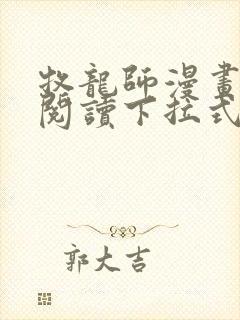 牧龍師漫畫
閱讀下拉式
郭大吉